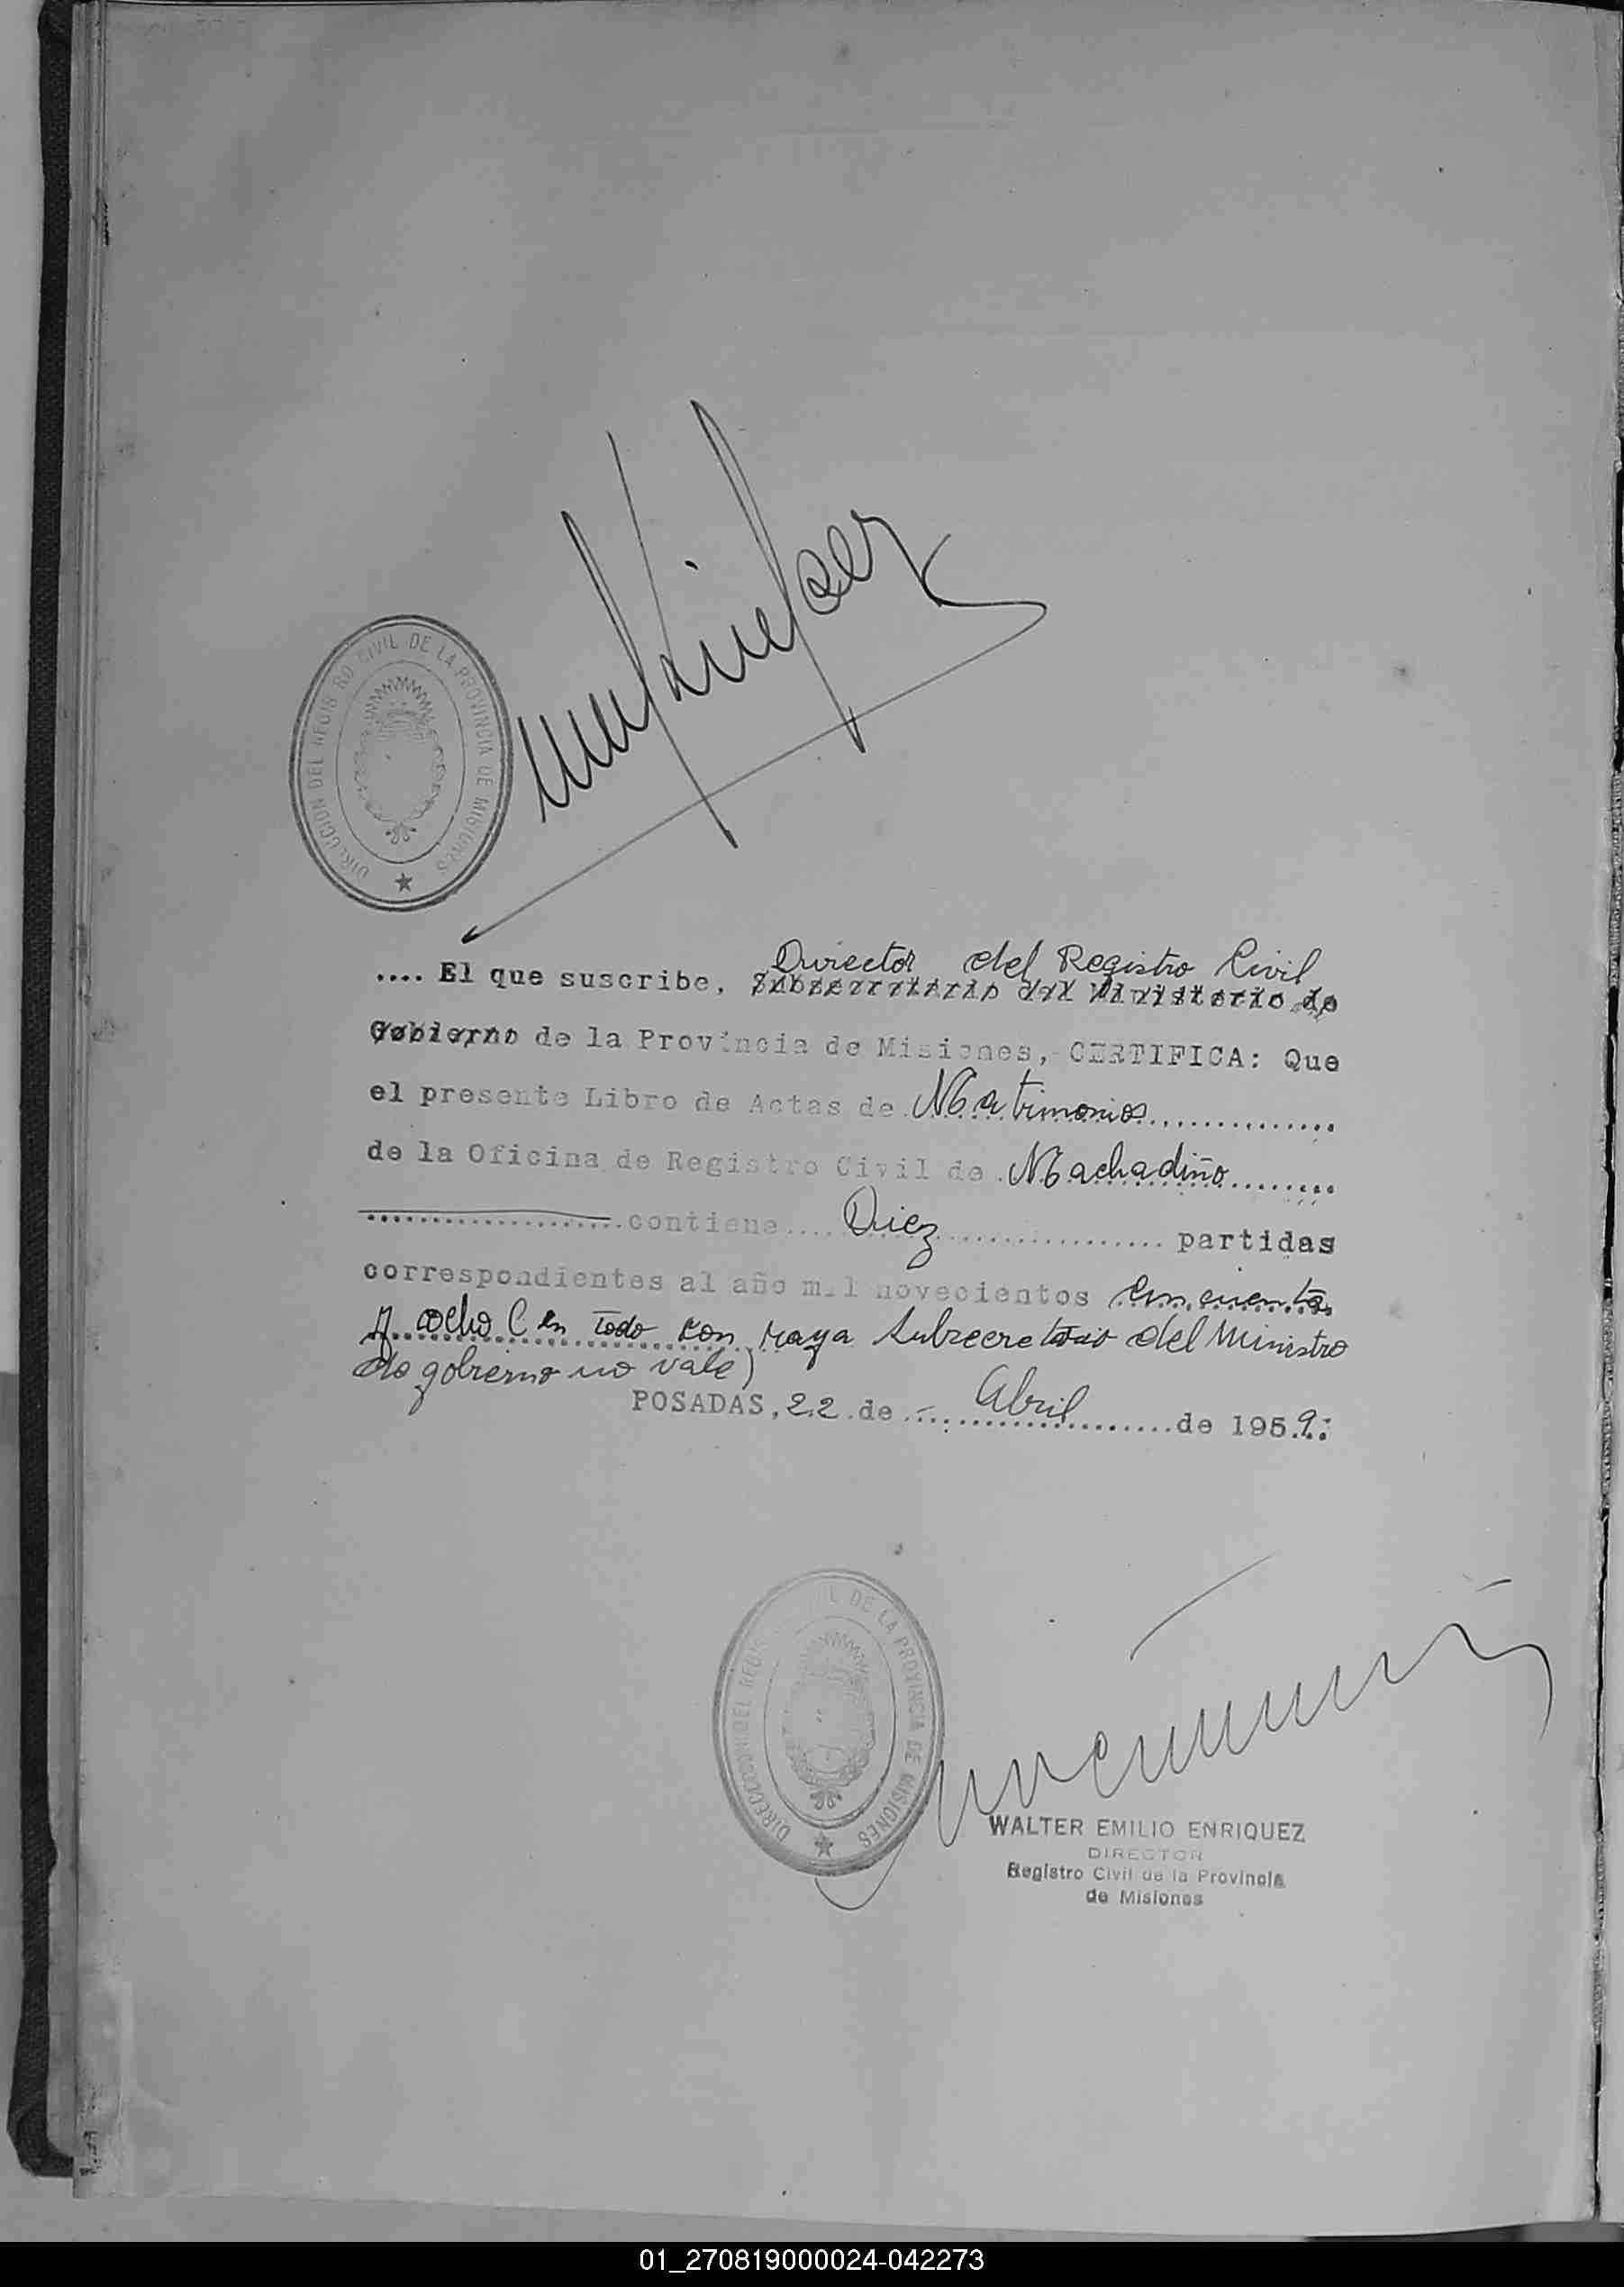 DIRECCION DEL REGISTRO CIVIL DE LA PROVINCIA DE MISIONES
Director del Registro Civil
.... El que suscribe, Subsecretario del Ministerio de
Gobierno de la Provincia de Misiones, CERTIFICA: Que
el presente Libro de Actas de Matrimonios
de la Oficina de Registro Civil de Machadiño
contiene Diez partidas
correspondientes al año mil novecientos cincuenta
y ocho (en todo con raya subsecretario del Ministro
de gobierno no vale)
POSADAS, 22 de Abril de 1959.
DIRECCION DEL REGISTRO CIVIL DE LA PROVINCIA DE MISIONES
WALTER EMILIO ENRIQUEZ
DIRECTOR
Registro Civil de la Provincia
de Misiones
01_270819000024-042273